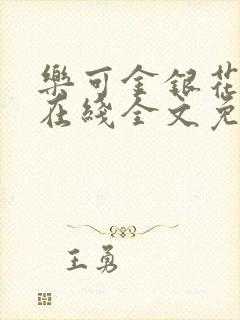 樂可金銀花
在綫全文免
王勇